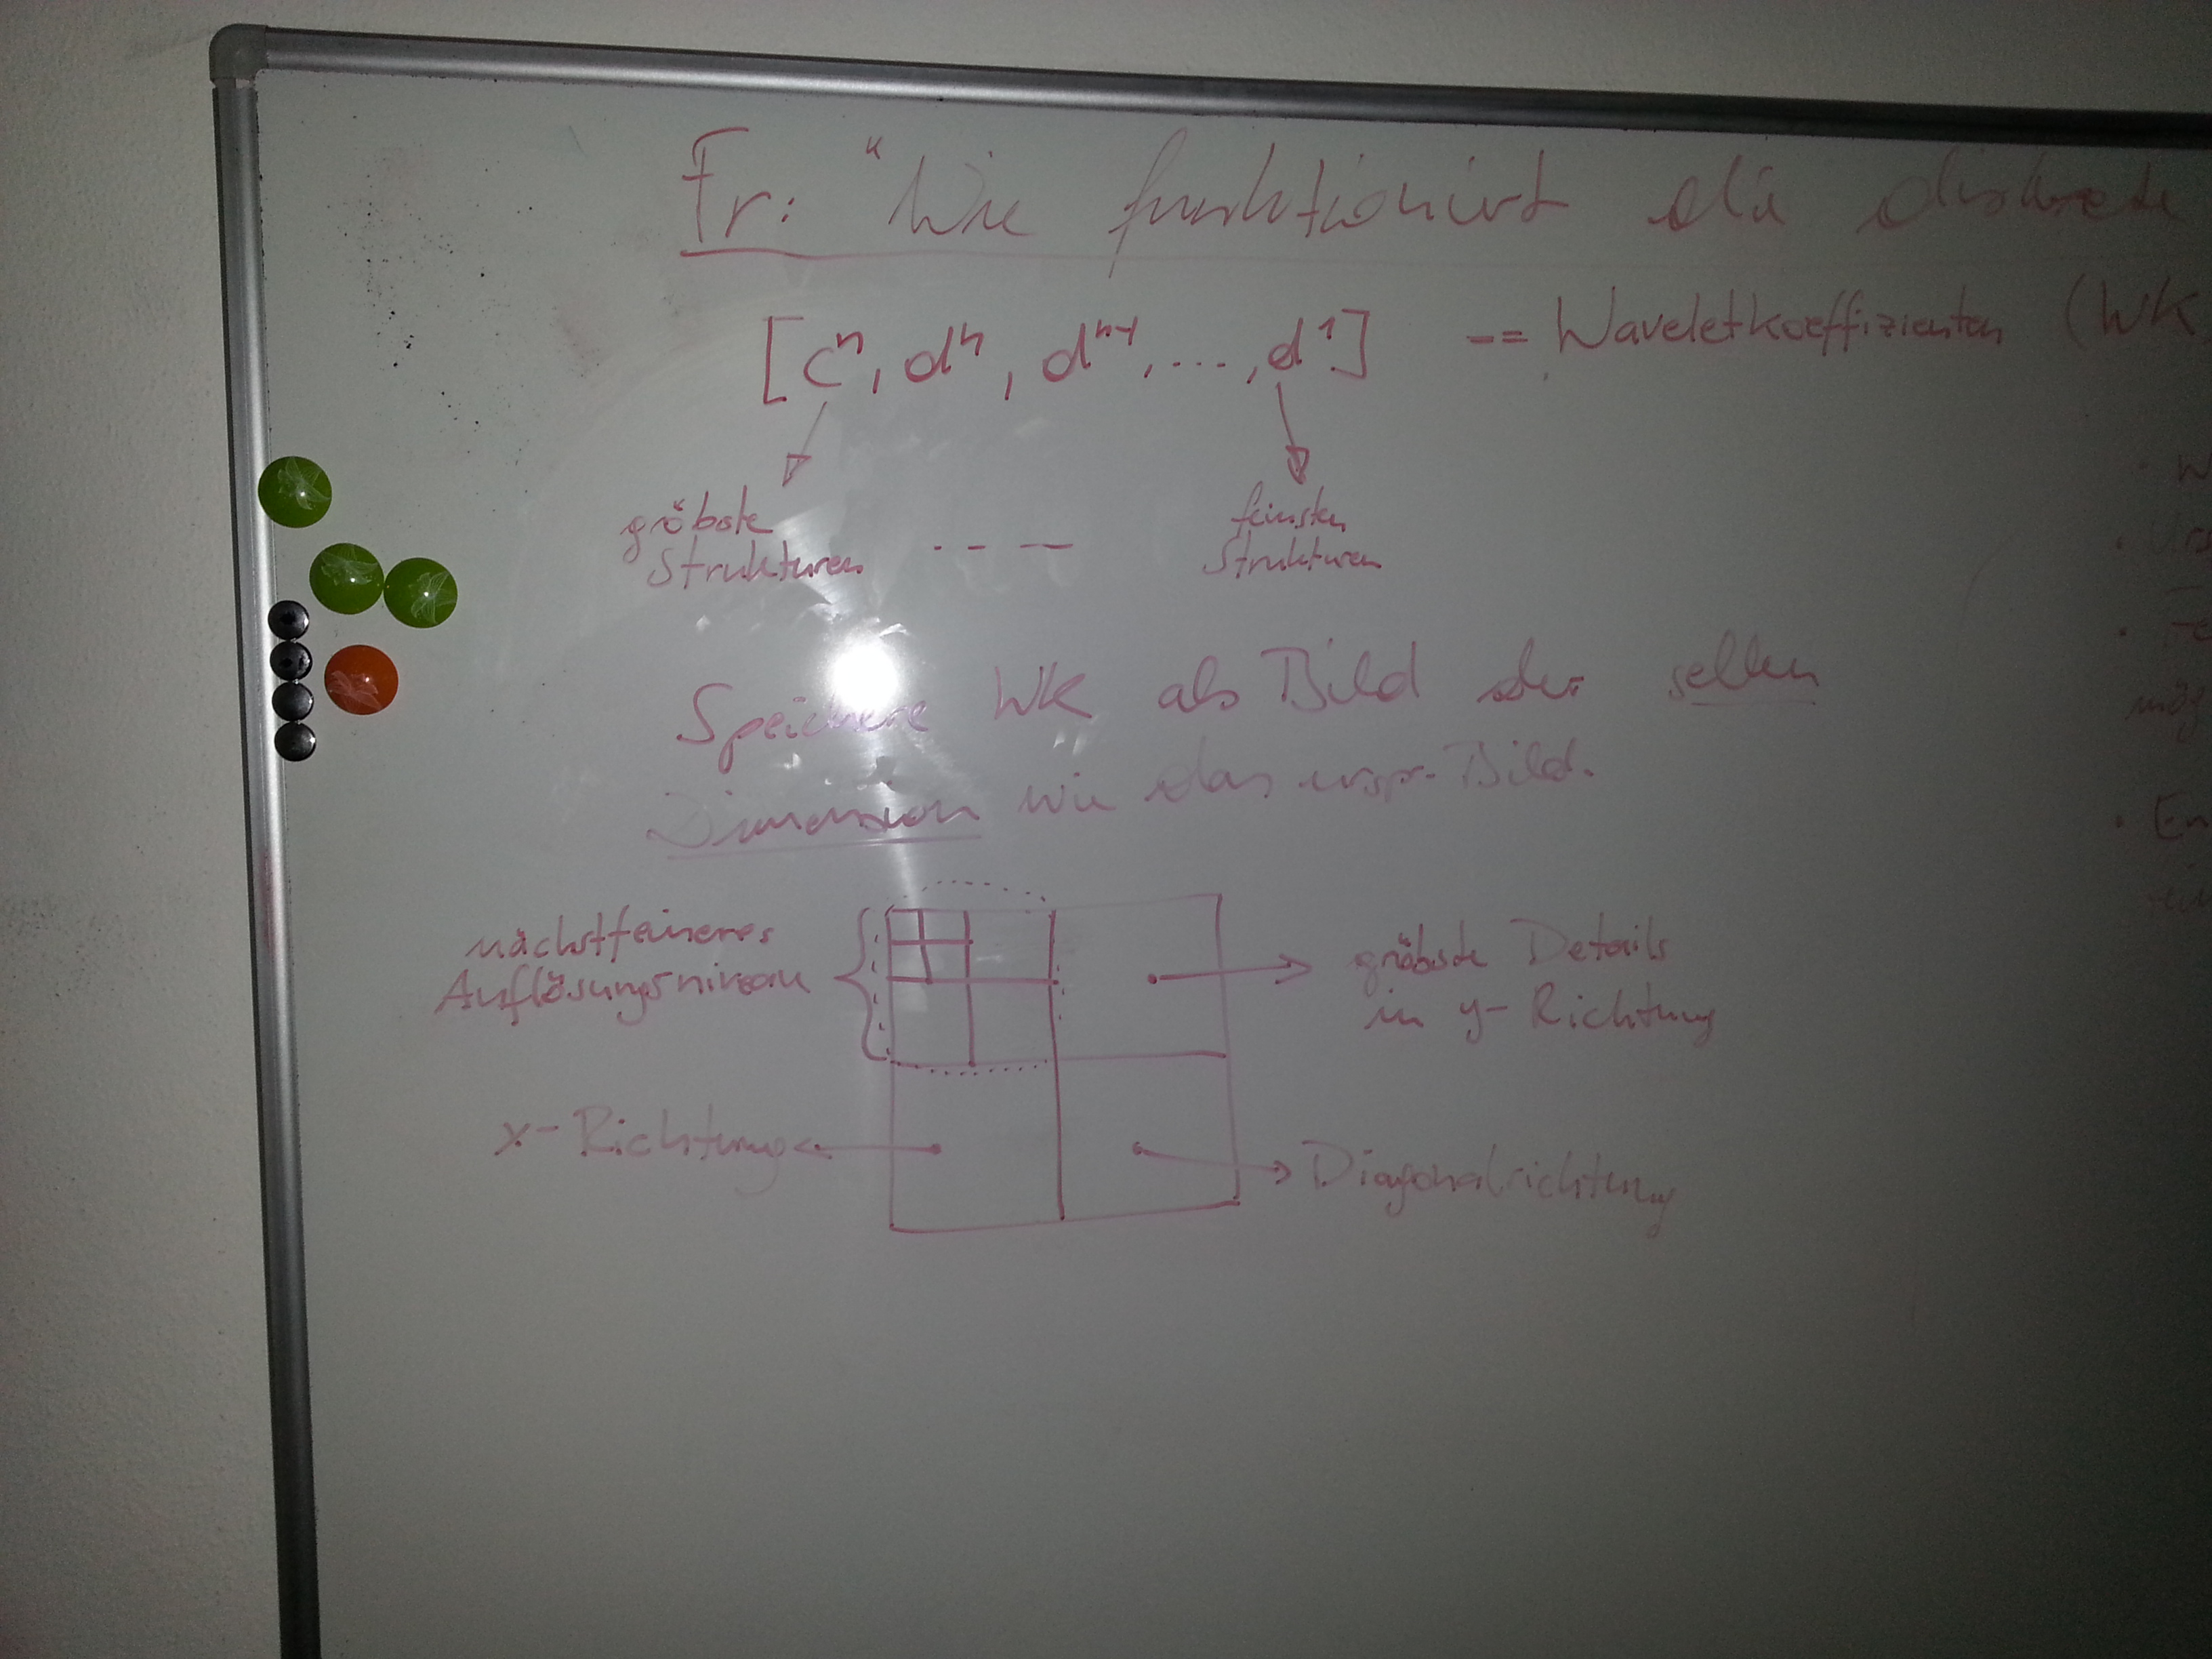 Fr: "Wie funktioniert die diskrete
[cⁿ, dⁿ, dⁿ⁻¹, ..., d¹] -- = Waveletkoeffizienten (WK
gröbste
Strukturen
feinsten
Strukturen
Speichere WK als Bild der selben
Dimension wie das urspr. Bild.
nächstfeineres
Auflösungsniveau
gröbste Details
in y-Richtung
x-Richtung
Diagonalrichtung